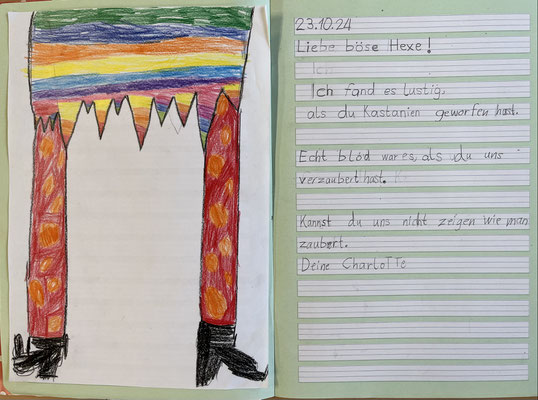 23.10.24
Liebe böse Hexe!
Ich
Ich fand es lustig,
als du Kastanien geworfen hast.
Echt blöd war es, als du uns
verzaubert hast.
Kannst du uns nicht zeigen wie man
zaubert.
Deine Charlotte